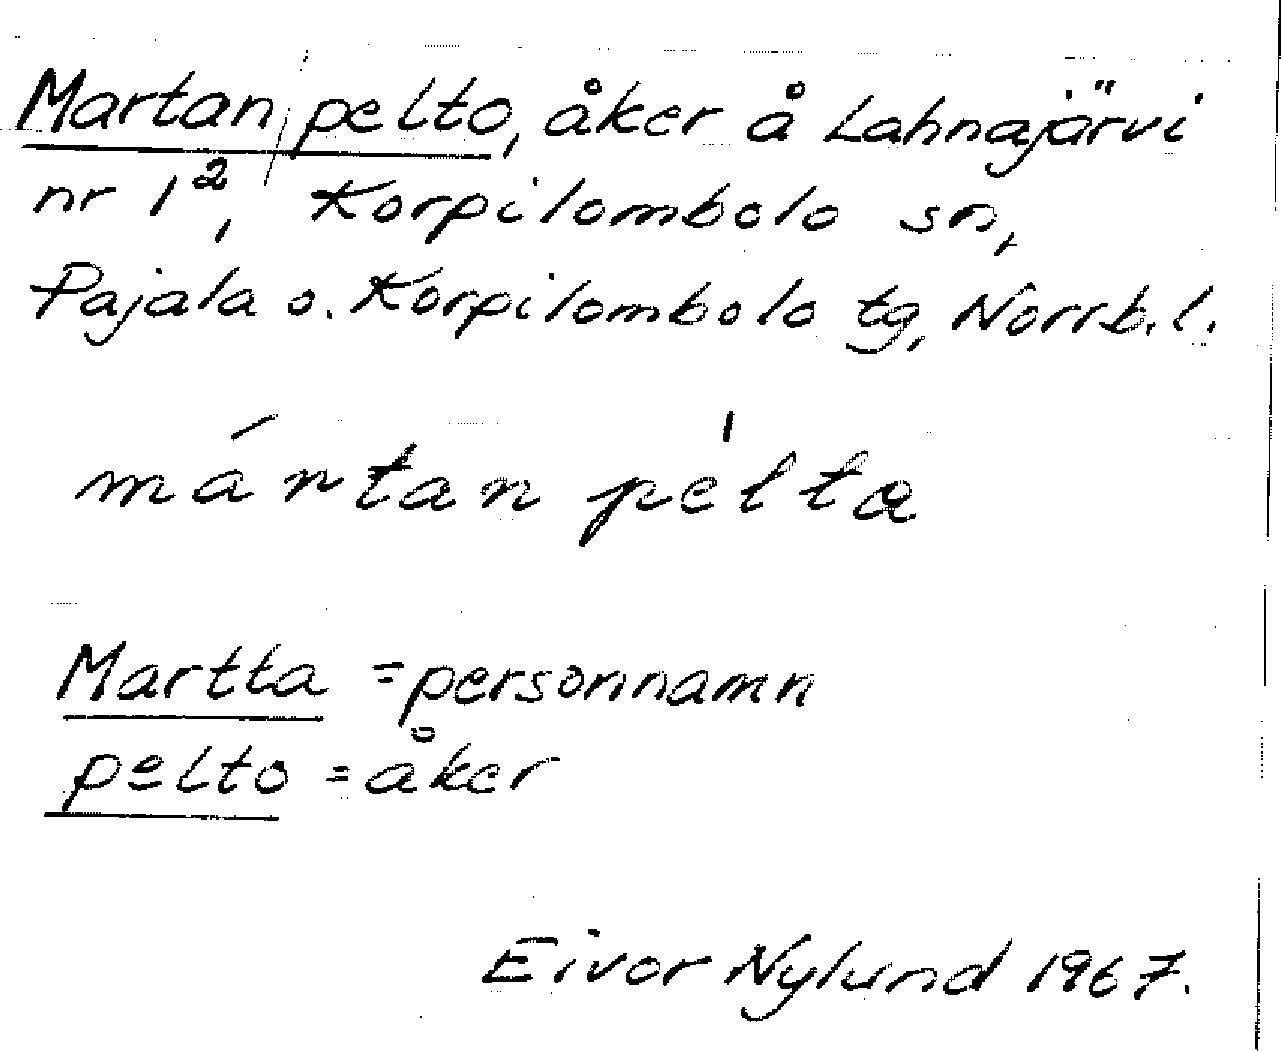 Martan pelto, åker å Lahnajärvi
nr 1², Korpilombolo sn,
Pajala o. Korpilombolo tg, Norrb. l.
mártan pèlta
Martta = personnamn
pelto = åker
Eivor Nylund 1967.